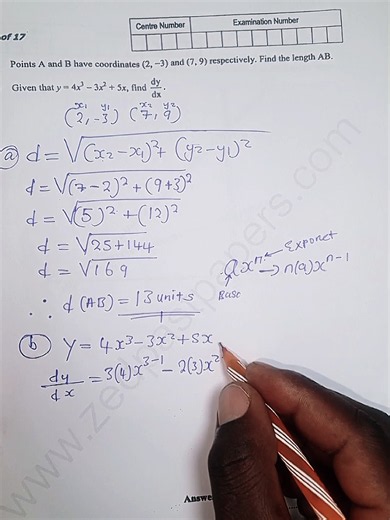 of 17
Centre Number Examination Number
Points A and B have coordinates (2, −3) and (7, 9) respectively. Find the length AB.
Given that y = 4x³ − 3x² + 5x, find dy/dx.
x₁ y₁ x₂ y₂
(2, −3) (7, 9)
(a) d = √(x₂ − x₁)² + (y₂ − y₁)²
d = √(7 − 2)² + (9+3)²
d = √(5)² + (12)²
d = √25+144
d = √169
∴ d(AB) = 13 units
axⁿ ← Exponet
→ n(a)xⁿ⁻¹
Base
(b) y = 4x³ − 3x² + 5x
dy/dx = 3(4)x³⁻¹ − 2(3)x²
Answe